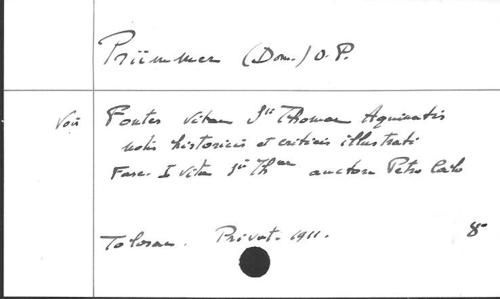 Prümmer (Dom.) O. P.
Voir Fontes vitae Sti Thomae Aquinatis
notis historicis et criticis illustrati
Fasc. I Vita Sti Thae auctore Petro Calo
Tolosae. Privat. 1911. 8°